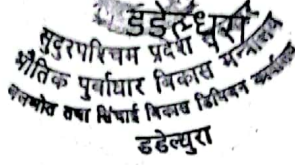 डडेल्धुरा
सुदुरपश्चिम प्रदेश
भौतिक पुर्वाधार विकास मन्त्रालय
जलस्रोत तथा सिंचाई विकास डिभिजन कार्यालय
डडेल्धुरा